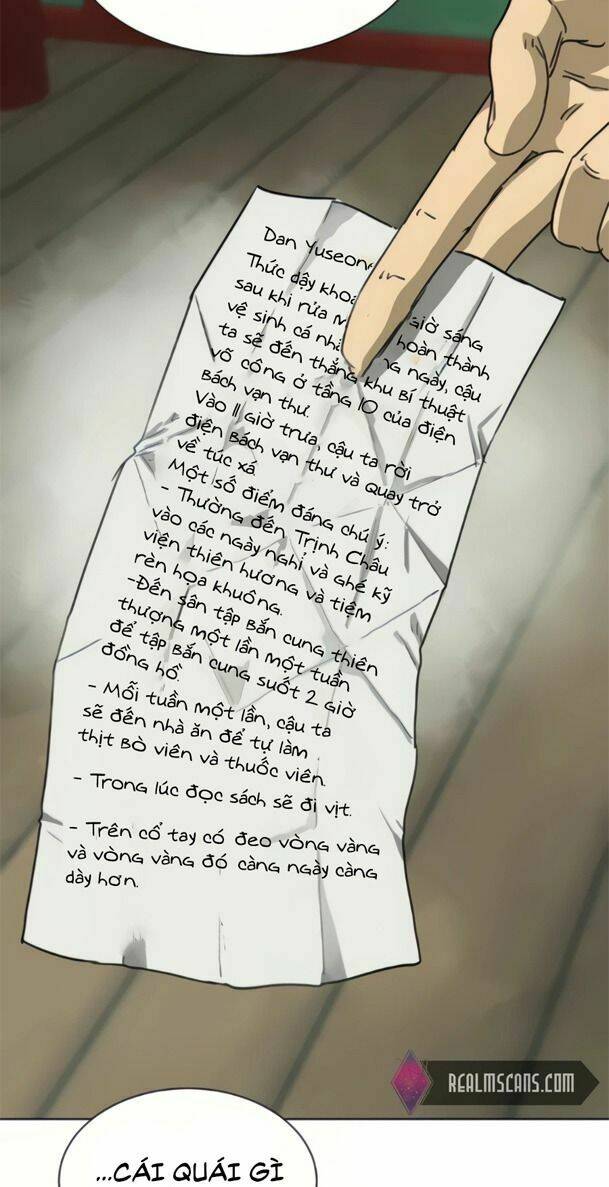 Dan Yuseong
Thức dậy khoả giờ sáng
sau khi rửa m hoàn thành
vệ sinh cá nhâ ng ngày, cậu
ta sẽ đến thẳng khu bí thuật
võ công ở tầng 10 của điện
Bách vạn thư.
Vào 11 giờ trưa, cậu ta rời
điện Bách vạn thư và quay trở
về túc xá
Một số điểm đáng chú ý:
- Thường đến Trịnh Châu
vào các ngày nghỉ và ghé kỹ
viện thiên hương và tiệm
rèn họa khuông.
-Đến sân tập bắn cung thiên
thượng một lần một tuần
để tập bắn cung suốt 2 giờ
đồng hồ.
- Mỗi tuần một lần, cậu ta
sẽ đến nhà ăn để tự làm
thịt bò viên và thuốc viên.
- Trong lúc đọc sách sẽ đi vịt.
- Trên cổ tay có đeo vòng vàng
và vòng vàng đó càng ngày càng
dày hơn.
REALMSCANS.COM
...CÁI QUÁI GÌ